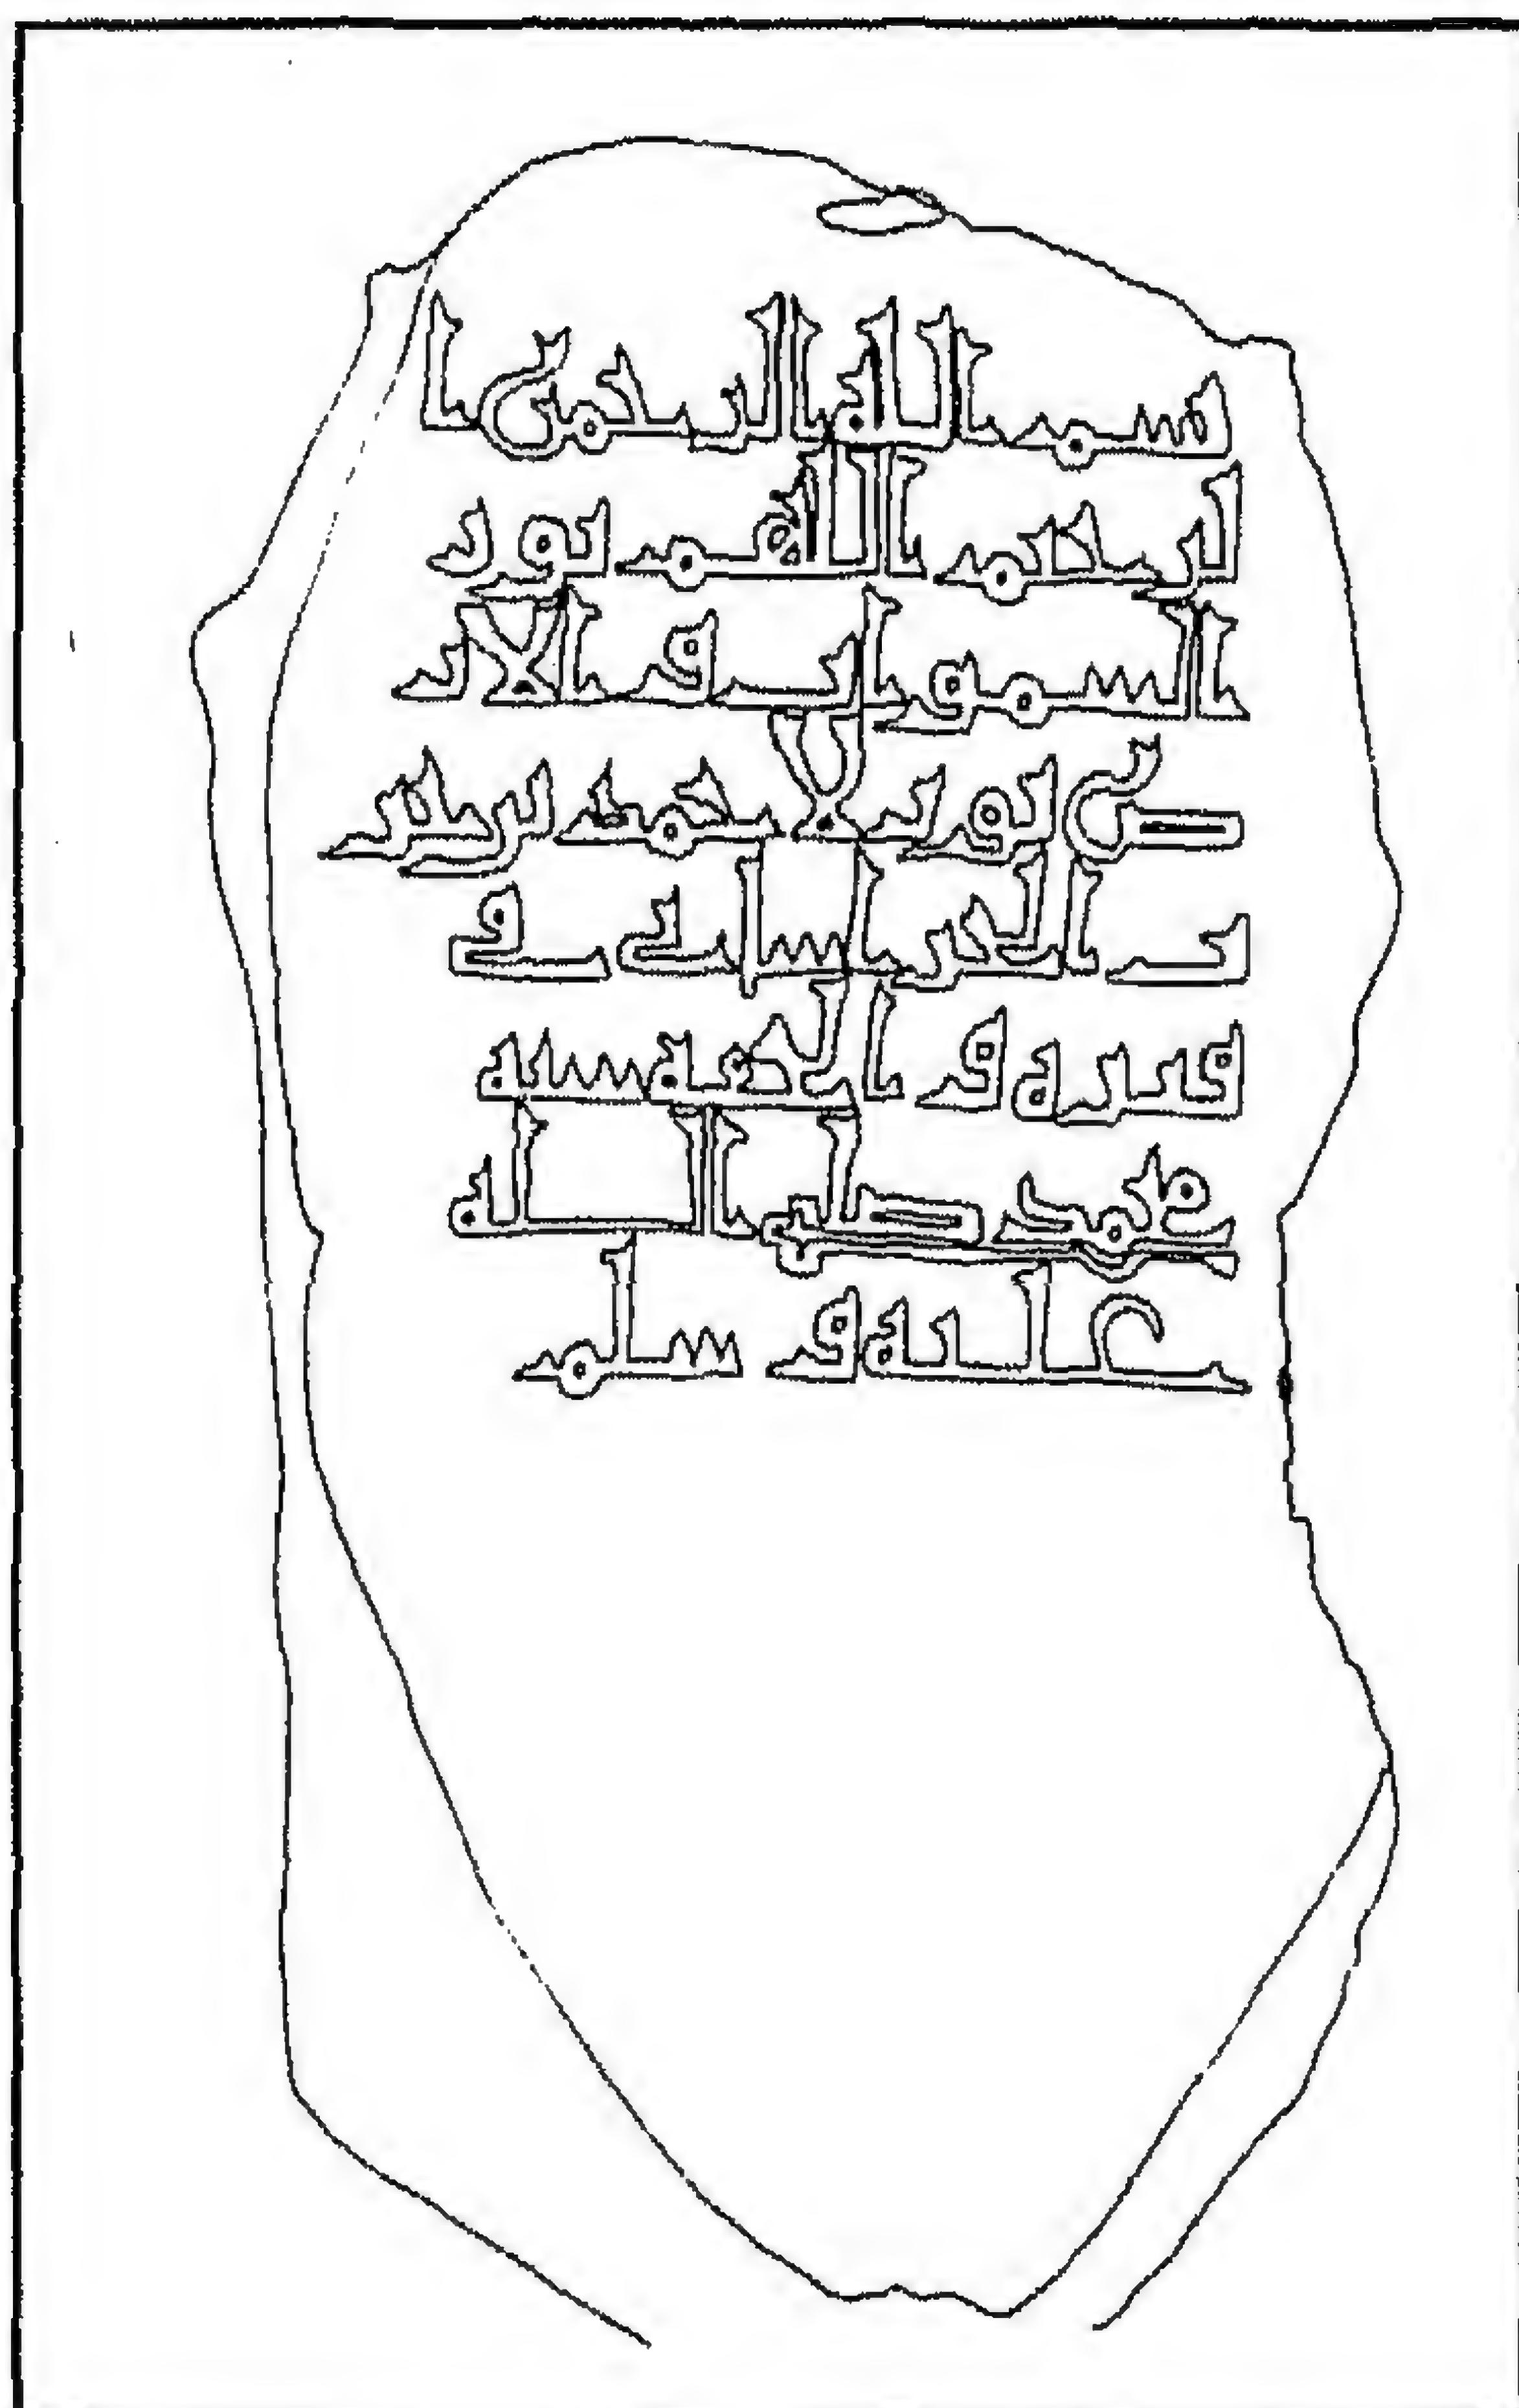 بسم الله الرحمن ا
لرحيم اللهم نور
السموات و الار
ض نور لاحمد بن يز
يد الخراساني في
قبره و الحقه بنبيه
محمد صلى الله
عليه و سلم